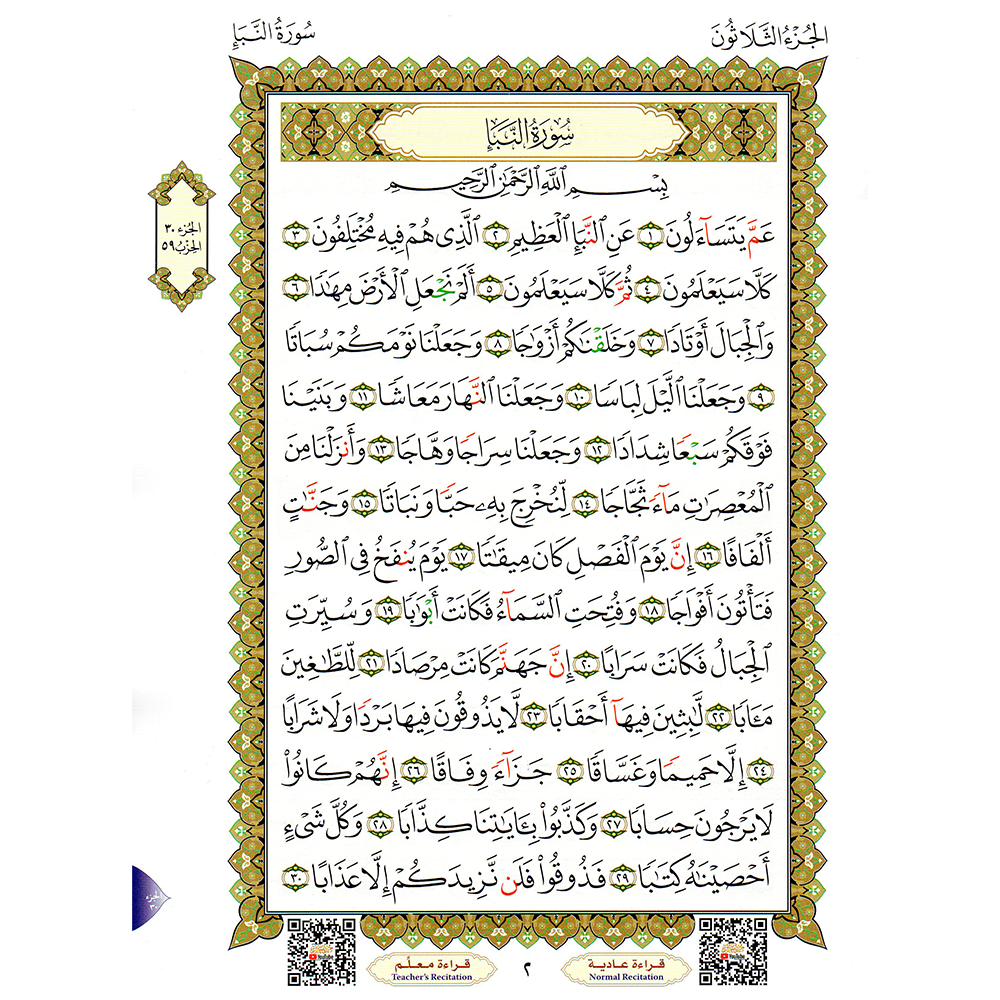 الجُزْءُ الثَّلَاثُونَ
سُورَةُ النَّبَإِ
سُورَةُ النَّبَإِ
الجُزء ٣٠
الحِزْبُ ٥٩
بِسْمِ ٱللَّهِ ٱلرَّحْمَٰنِ ٱلرَّحِيمِ
عَمَّ يَتَسَآءَلُونَ ١ عَنِ ٱلنَّبَإِ ٱلْعَظِيمِ ٢ ٱلَّذِى هُمْ فِيهِ مُخْتَلِفُونَ ٣
كَلَّا سَيَعْلَمُونَ ٤ ثُمَّ كَلَّا سَيَعْلَمُونَ ٥ أَلَمْ نَجْعَلِ ٱلْأَرْضَ مِهَٰدًا ٦
وَٱلْجِبَالَ أَوْتَادًا ٧ وَخَلَقْنَٰكُمْ أَزْوَٰجًا ٨ وَجَعَلْنَا نَوْمَكُمْ سُبَاتًا
٩ وَجَعَلْنَا ٱلَّيْلَ لِبَاسًا ١٠ وَجَعَلْنَا ٱلنَّهَارَ مَعَاشًا ١١ وَبَنَيْنَا
فَوْقَكُمْ سَبْعًا شِدَادًا ١٢ وَجَعَلْنَا سِرَاجًا وَهَّاجًا ١٣ وَأَنزَلْنَا مِنَ
ٱلْمُعْصِرَٰتِ مَآءً ثَجَّاجًا ١٤ لِّنُخْرِجَ بِهِۦ حَبًّا وَنَبَاتًا ١٥ وَجَنَّٰتٍ
أَلْفَافًا ١٦ إِنَّ يَوْمَ ٱلْفَصْلِ كَانَ مِيقَٰتًا ١٧ يَوْمَ يُنفَخُ فِى ٱلصُّورِ
فَتَأْتُونَ أَفْوَاجًا ١٨ وَفُتِحَتِ ٱلسَّمَآءُ فَكَانَتْ أَبْوَٰبًا ١٩ وَسُيِّرَتِ
ٱلْجِبَالُ فَكَانَتْ سَرَابًا ٢٠ إِنَّ جَهَنَّمَ كَانَتْ مِرْصَادًا ٢١ لِّلطَّٰغِينَ
مَـَٔابًا ٢٢ لَّٰبِثِينَ فِيهَآ أَحْقَابًا ٢٣ لَّا يَذُوقُونَ فِيهَا بَرْدًا وَلَا شَرَابًا
٢٤ إِلَّا حَمِيمًا وَغَسَّاقًا ٢٥ جَزَآءً وِفَاقًا ٢٦ إِنَّهُمْ كَانُوا۟
لَا يَرْجُونَ حِسَابًا ٢٧ وَكَذَّبُوا۟ بِـَٔايَٰتِنَا كِذَّابًا ٢٨ وَكُلَّ شَىْءٍ
أَحْصَيْنَٰهُ كِتَٰبًا ٢٩ فَذُوقُوا۟ فَلَن نَّزِيدَكُمْ إِلَّا عَذَابًا ٣٠
الجزء
٣٠
YouTube
قراءة معلّم
Teacher's Recitation
٢
قراءة عادية
Normal Recitation
YouTube